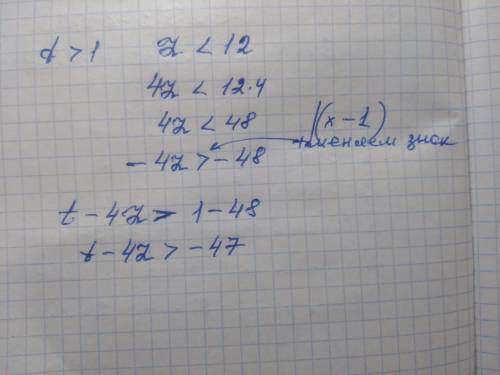 t > 1
z < 12
4z < 12·4
4z < 48
|(x – 1)
– 4z > – 48
меняем знак
t – 4z > 1 – 48
t – 4z > – 47